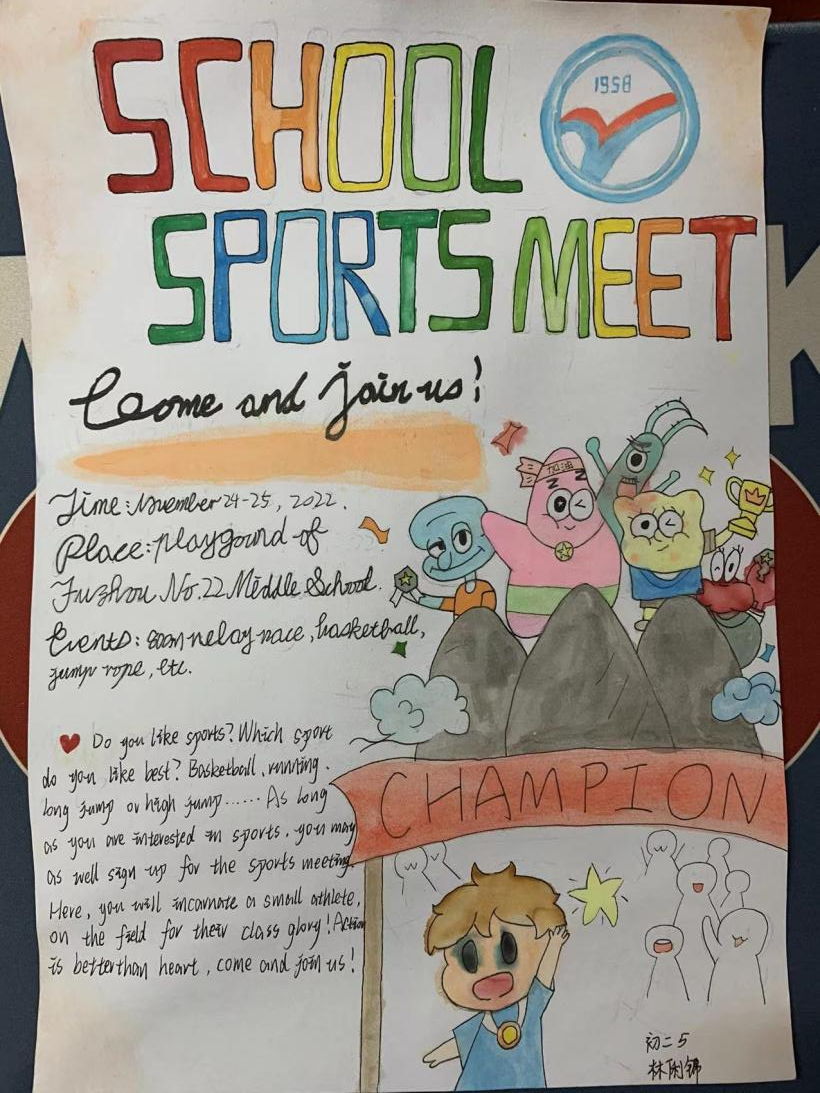 SCHOOL
1958
SPORTS MEET
Come and join us!
Time: November 24-25, 2022.
Place: playgound of
Fuzhou No.22 Middle School.
Events: 800m relay race, basketball,
jump rope, etc.
加油
Do you like sports? Which sport
do you like best? Basketball, running,
long jump or high jump...... As long
as you are interested in sports, you may
as well sign up for the sports meeting.
Here, you will incarnate a small athlete,
on the field for their class glory! Action
is betterthan heart, come and join us!
CHAMPION
初二5
林